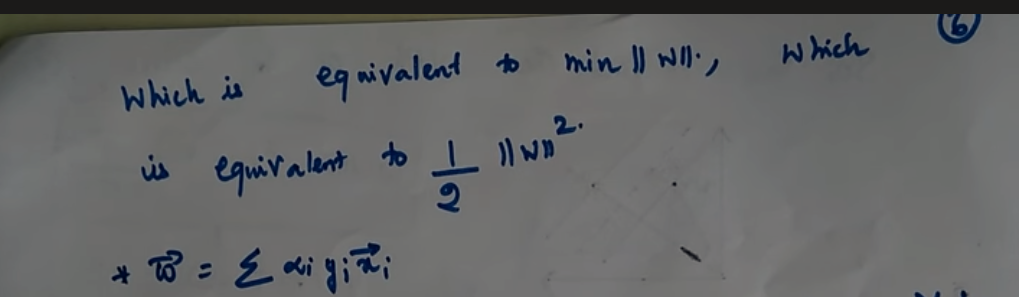 6
Which is equivalent to min ||w||., which
is equivalent to 1/2 ||w||².
* w⃗ = Σ αᵢ yᵢ x⃗ᵢ